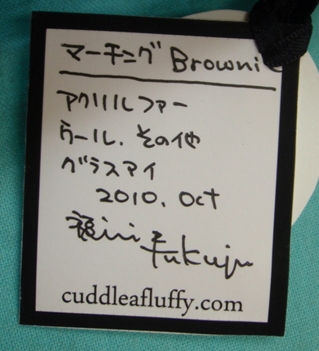 マーチング Brownie
アクリルファー
ウール、その他
グラスアイ
2010, Oct
Fukuju
cuddleafluffy.com